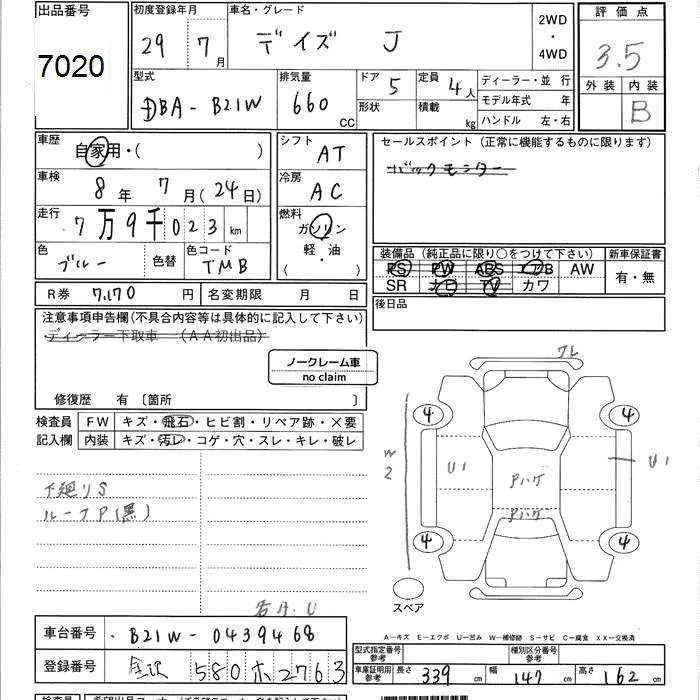 出品番号
7020
初度登録年月
29 7月
車名・グレード
デイズ J
2WD
・
4WD
評価点
3.5
外装 内装
B
型式
DBA-B21W
排気量
660 CC
ドア 5
形状
定員 4人
積載 kg
ディーラー・並行
モデル年式 年
ハンドル 左・右
車歴
自家用・( )
シフト
AT
セールスポイント(正常に機能するものに限ります)
バックモニター
車検
8年 7月(24日)
冷房
AC
走行
7万9千023km
燃料
ガソリン
軽・油
( )
色
ブルー
色替
色コード
TMB
装備品(純正品に限り○をつけて下さい)
PS PW ABS エアB AW
SR ナビ TV カワ
新車保証書
有・無
R券 7,170円
名変期限 月 日
後日品
注意事項申告欄(不具合内容等は具体的に記入して下さい)
ディーラー下取車 (AA初出品)
ノークレーム車
no claim
修復歴 有〔箇所 〕
検査員
記入欄
FW キズ・飛石・ヒビ割・リペア跡・×要
内装 キズ・汚レ・コゲ・穴・スレ・キレ・破レ
下廻りS
ルーフP(黒)
ワレ
4
4
W2
U1
Pハゲ
Pハゲ
U1
4
4
スペア
A-キズ E-エクボ U-凹み W-補修跡 S-サビ C-腐食 XX-交換済
車台番号
B21W-0439468
登録番号
金沢 580 ホ 2763
型式指定番号
参考
種別区分番号
参考
車庫証明用
参考
長さ 339cm
幅 147cm
高さ 162cm